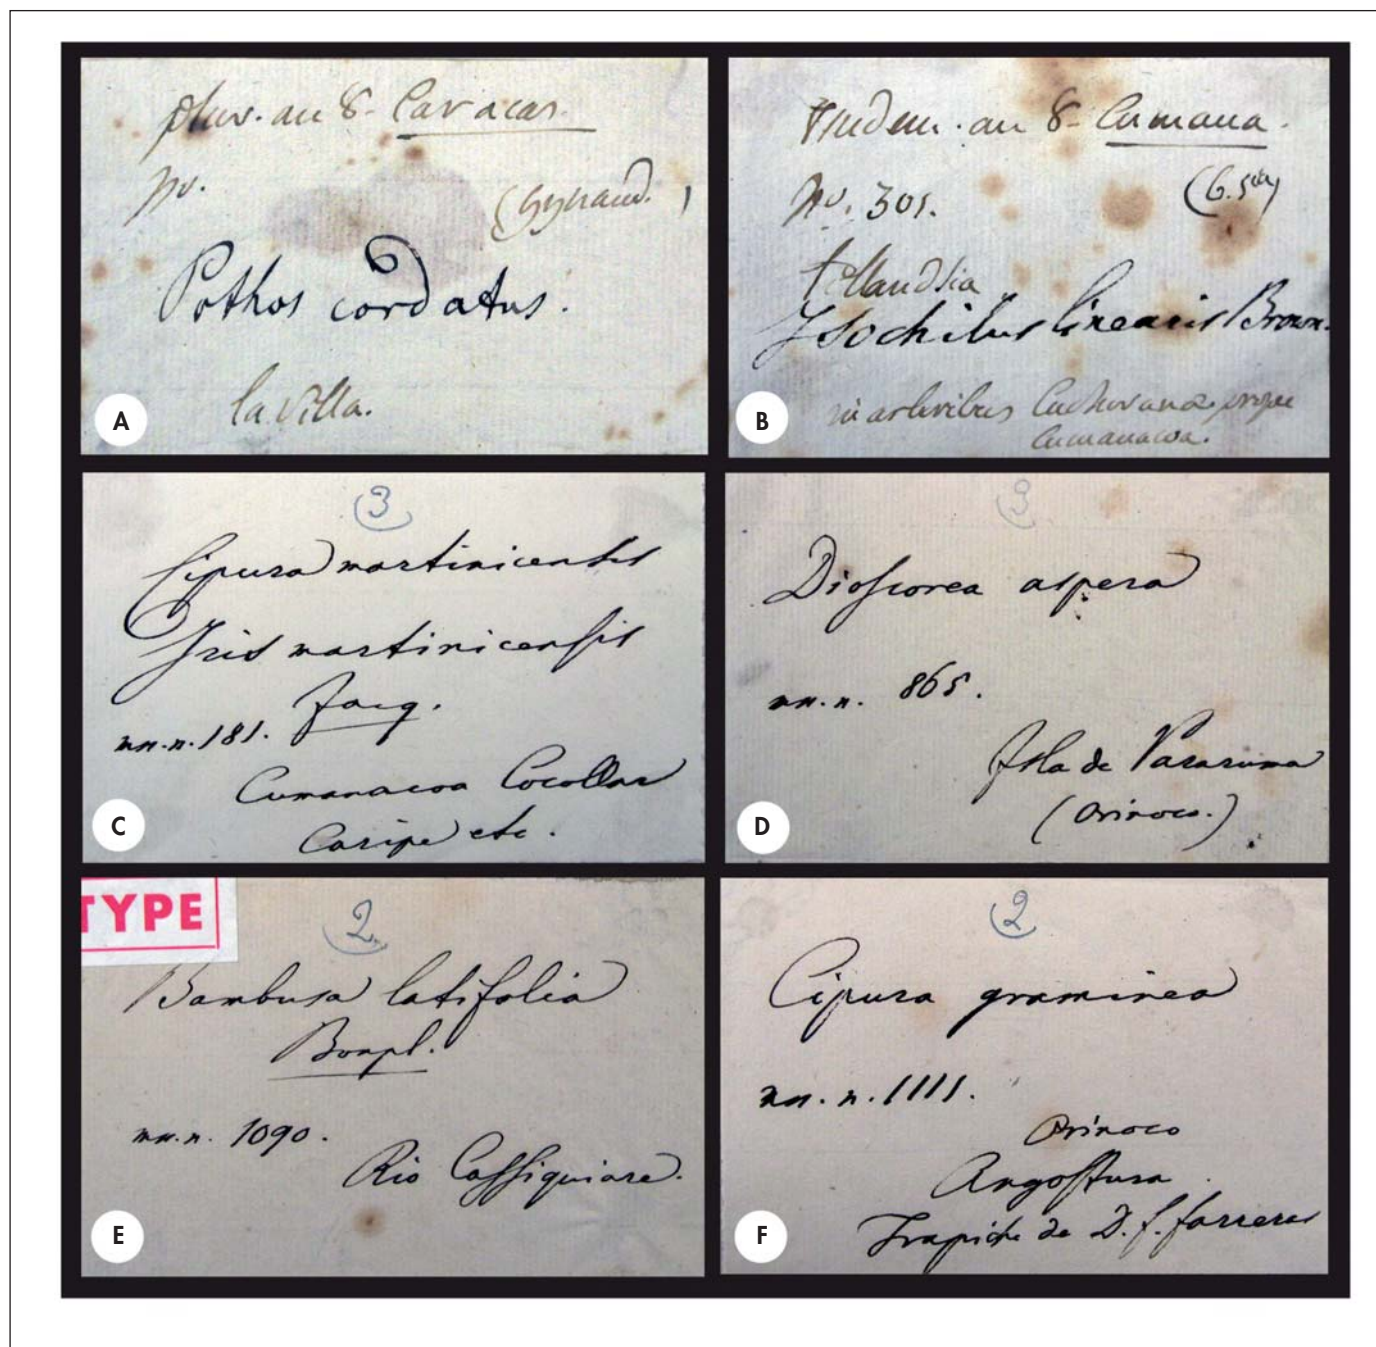 pluv. an 8- Caracas.
no.
(Gynand.)
Pothos cordatus.
la Villa.
A
an 8- Cumana.
(G. 5th)
No. 301.
tillandsia
Ysochilus linearis Brown.
in arboribus Cuchivano prope
Cumanacoa.
B
3
Cipura martinicensis
Iris martinicensis
Jacq.
mn.n. 181.
Cumanacoa Cocollar
Caripe etc.
C
3
Dioscorea aspera
mn.n. 865.
Isla de Pararuma
(Orinoco.)
D
TYPE
2
Bambusa latifolia
Bonpl.
mn.n. 1090.
Rio Cassiquiare.
E
2
Cipura graminea
mn.n. 1111.
Orinoco
Angostura
Trapiche de D. f. farreras
F